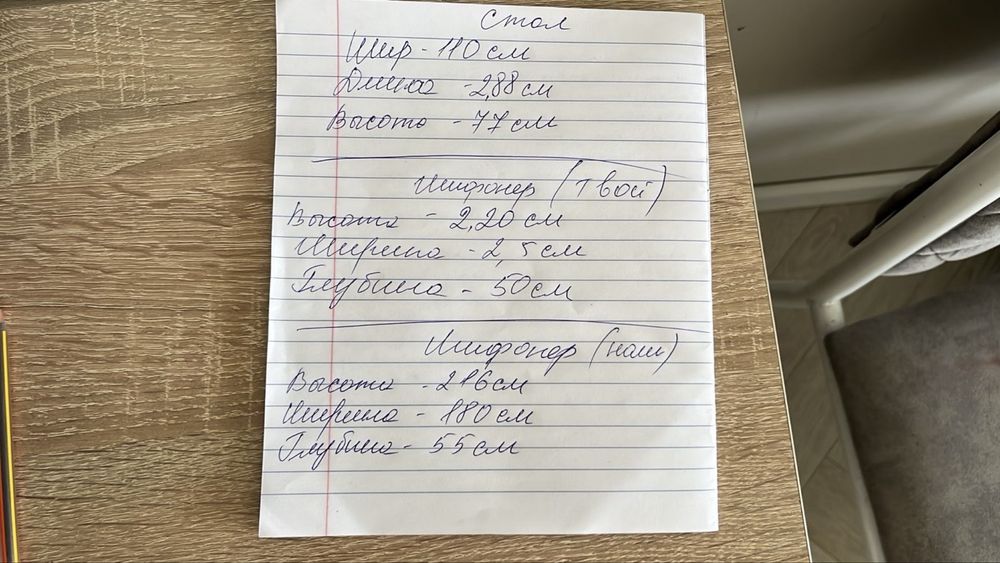 Стол
Шир - 110 см
Длина - 2,88 см
Высота - 77 см
Шифонер (твой)
Высота - 2,20 см
Ширина - 2,5 см
Глубина - 50 см
Шифонер (наш)
Высота - 216 см
Ширина - 180 см
Глубина - 55 см